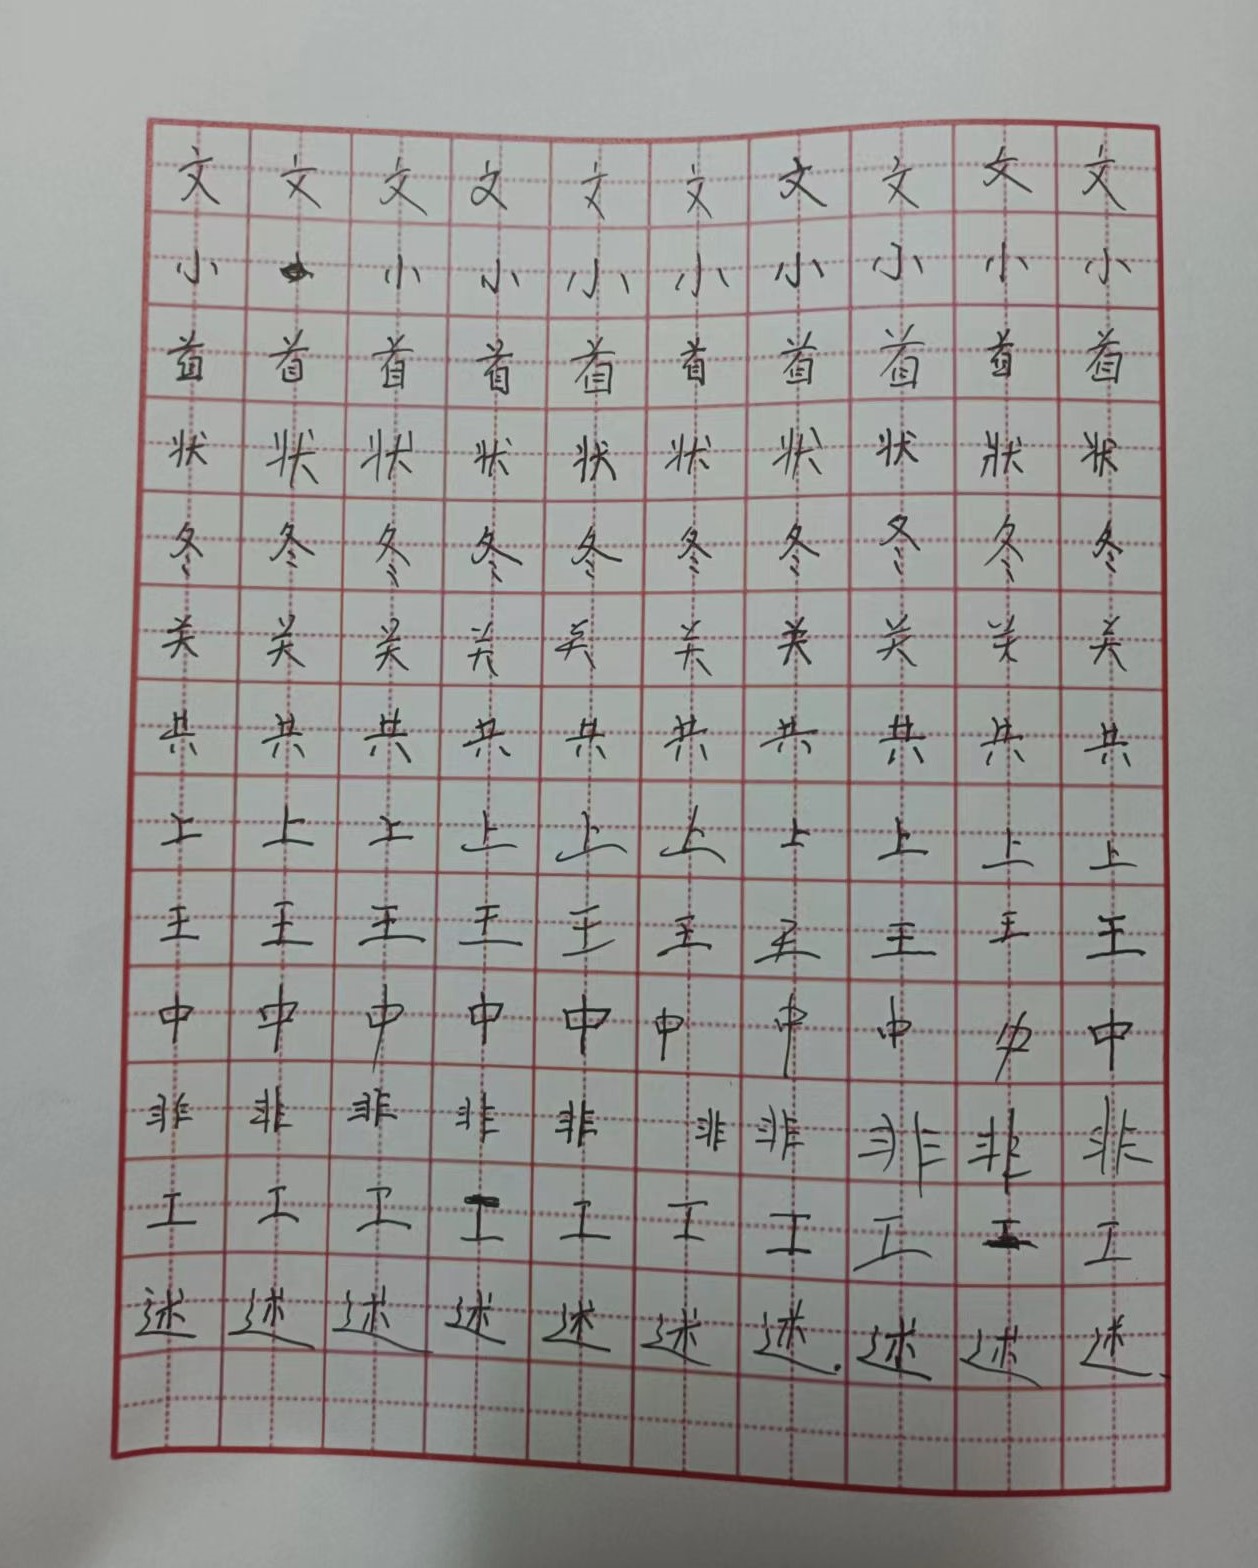 文文文文文文文文文文
小小小小小小小小小
首首首首首首首首首首
状状状状状状状状状状
冬冬冬冬冬冬冬冬冬冬
关关关关关关关关关关
共共共共共共共共共共
上上上上上上上上上上
王王王王王王王王王王
中中中中中中中中中中
非非非非非非非非非非
工工工工工工工工工工
述述述述述述述述述述